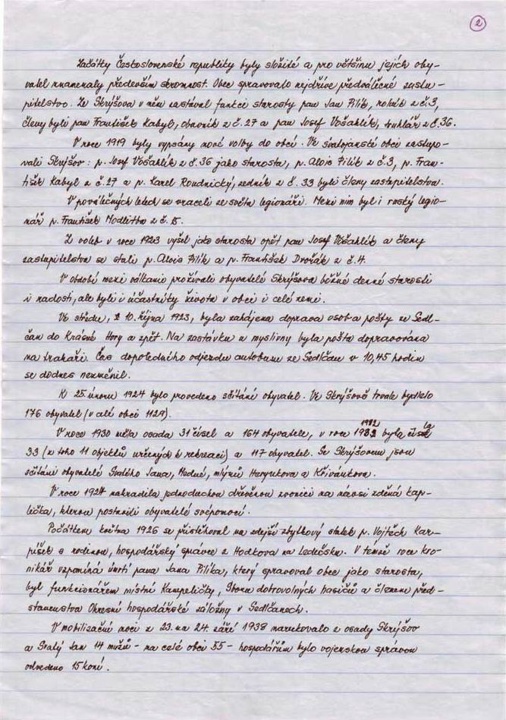 2
Začátky Československé republiky byly složité a pro většinu jejich oby-
vatel znamenaly především skromnost. Obec spravovalo nejdříve předválečné zastu-
pitelstvo. Ze Skrýšova v něm zastával funkce starosty pan Jan Pilík, rolník z č. 3,
členy byli pan František Kabyl, obuvník z č. 27 a pan Josef Vošahlík, truhlář z č. 36.
V roce 1919 byly vypsány nové volby do obcí. Ve svatojánské obci zastupo-
vali Skrýšov: p. Josef Vošahlík z č. 36 jako starosta, p. Alois Pilík z č. 3, p. Fran-
tišek Kabyl z č. 27 a p. Karel Roudnický, sedník z č. 33 byli členy zastupitelstva.
V poválečných letech se vraceli ze světa legionáři. Mezi nimi byl i ruský legio-
nář p. František Modlitba z č. 15.
Z voleb v roce 1923 vyšel jako starosta opět pan Josef Vošahlík a členy
zastupitelstva se stali p. Alois Pilík a p. František Dvořák z č. 4.
V období mezi válkami prožívali obyvatelé Skrýšova běžné denní starosti
i radosti, ale byli i účastníky života v obci i celé zemi.
Ve středu, 10. října 1923, byla zahájena doprava osob a pošty ze Sedl-
čan do Krásné Hory a zpět. Na zastávku u myslivny byla pošta dopravována
na trakaři. Čas dopoledního odjezdu autobusu ze Sedlčan v 10,45 hodin
se dodnes nezměnil.
K 25. únoru 1924 bylo provedeno sčítání obyvatel. Ve Skrýšově trvale bydlelo
176 obyvatel (v celé obci 1129).
V roce 1930 měla osada 31 čísel a 164 obyvatele, v roce 1982 byla čísla
33 (z toho 11 objektů určených k rekreaci) a 117 obyvatel. Se Skrýšovem jsou
sčítáni obyvatelé Svatého Jana, Hodné, mlýnů Heryukova a Křivánkova.
V roce 1924 nahradila jednoduchou dřevěnou zvonici na návsi zděná kap-
lička, kterou postavili obyvatelé svépomocí.
Počátkem května 1926 se přistěhoval na zdejší zbytkový statek p. Vojtěch Kar-
píšek s rodinou, hospodářský správce z Hodkova na Ledečsku. V témže roce kro-
nikář vzpomíná úmrtí pana Jana Pilíka, který spravoval obec jako starosta,
byl funkcionářem místní Kampeličky, Sboru dobrovolných hasičů a členem před-
stavenstva Okresní hospodářské záložny v Sedlčanech.
V mobilizační noci z 23. na 24. září 1938 narukovalo z osady Skrýšov
a Svatý Jan 14 mužů - na celé obci 55 - hospodářům bylo vojenskou správou
odvedeno 15 koní.